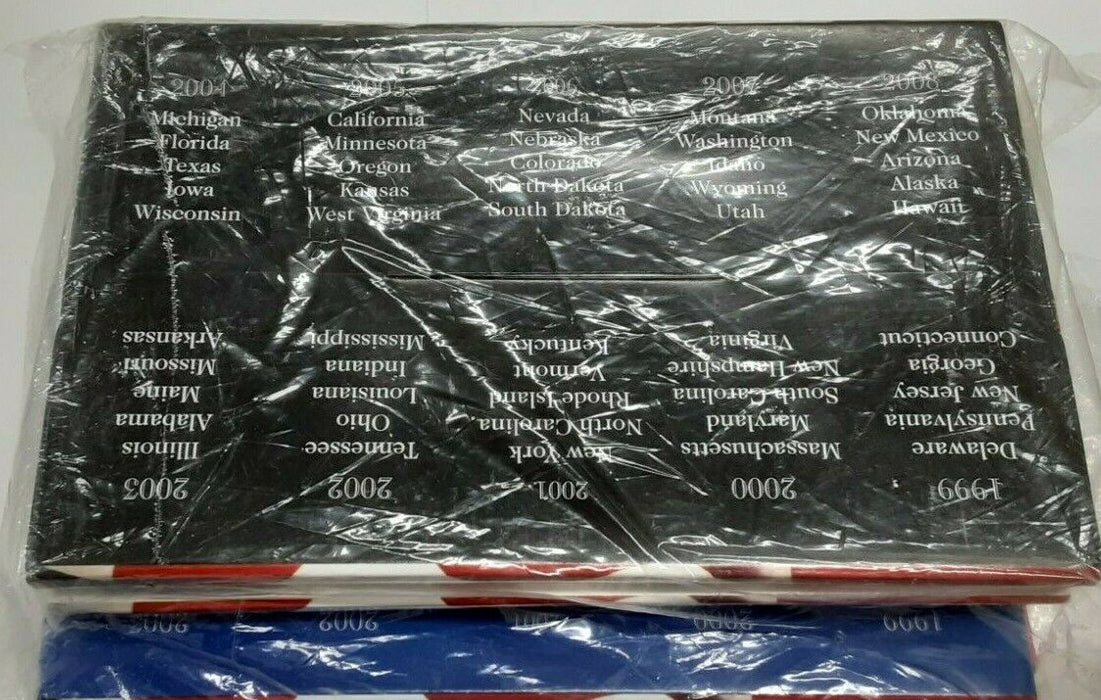 2004 2005 2006 2007 2008
Michigan California Nevada Montana Oklahoma
Florida Minnesota Nebraska Washington New Mexico
Texas Oregon Colorado Idaho Arizona
Iowa Kansas North Dakota Wyoming Alaska
Wisconsin West Virginia South Dakota Utah Hawaii
1999 2000 2001 2002 2003
Delaware Massachusetts New York Tennessee Illinois
Pennsylvania Maryland North Carolina Ohio Alabama
New Jersey South Carolina Rhode Island Louisiana Maine
Georgia New Hampshire Vermont Indiana Missouri
Connecticut Virginia Kentucky Mississippi Arkansas
1999 2000 2001 2002 2003